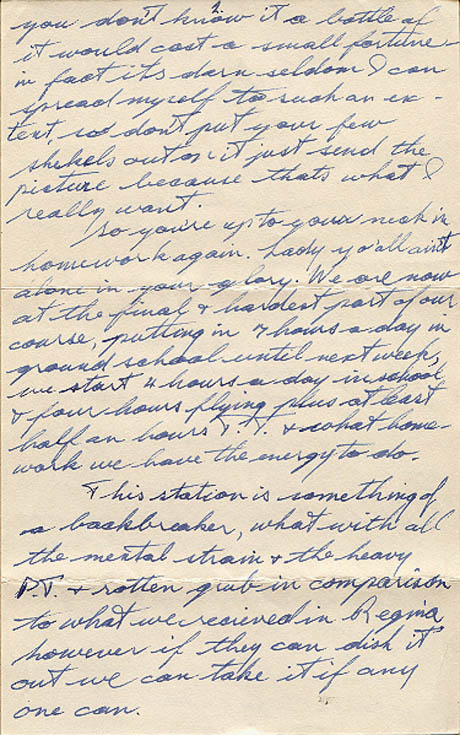 2.
you don't know it a bottle of
it would cost a small fortune
in fact its darn seldom I can
spread myself to such an ex-
tent, so don't put your few
shekels out on it just send the
picture because thats what I
really want.
So you're up to your neck in
homework again. Lady yo'all ain't
alone in your glory. We are now
at the final & hardest part of our
course, putting in 7 hours a day in
ground school until next week,
we start 4 hours a day in school
& four hours flying plus at least
half an hours P.T. & what home-
work we have the energy to do.
This station is something of
a backbreaker, what with all
the mental strain & the heavy
P.T. & rotten grub in comparison
to what we recieved in Regina
however if they can dish it
out we can take it if any
one can.